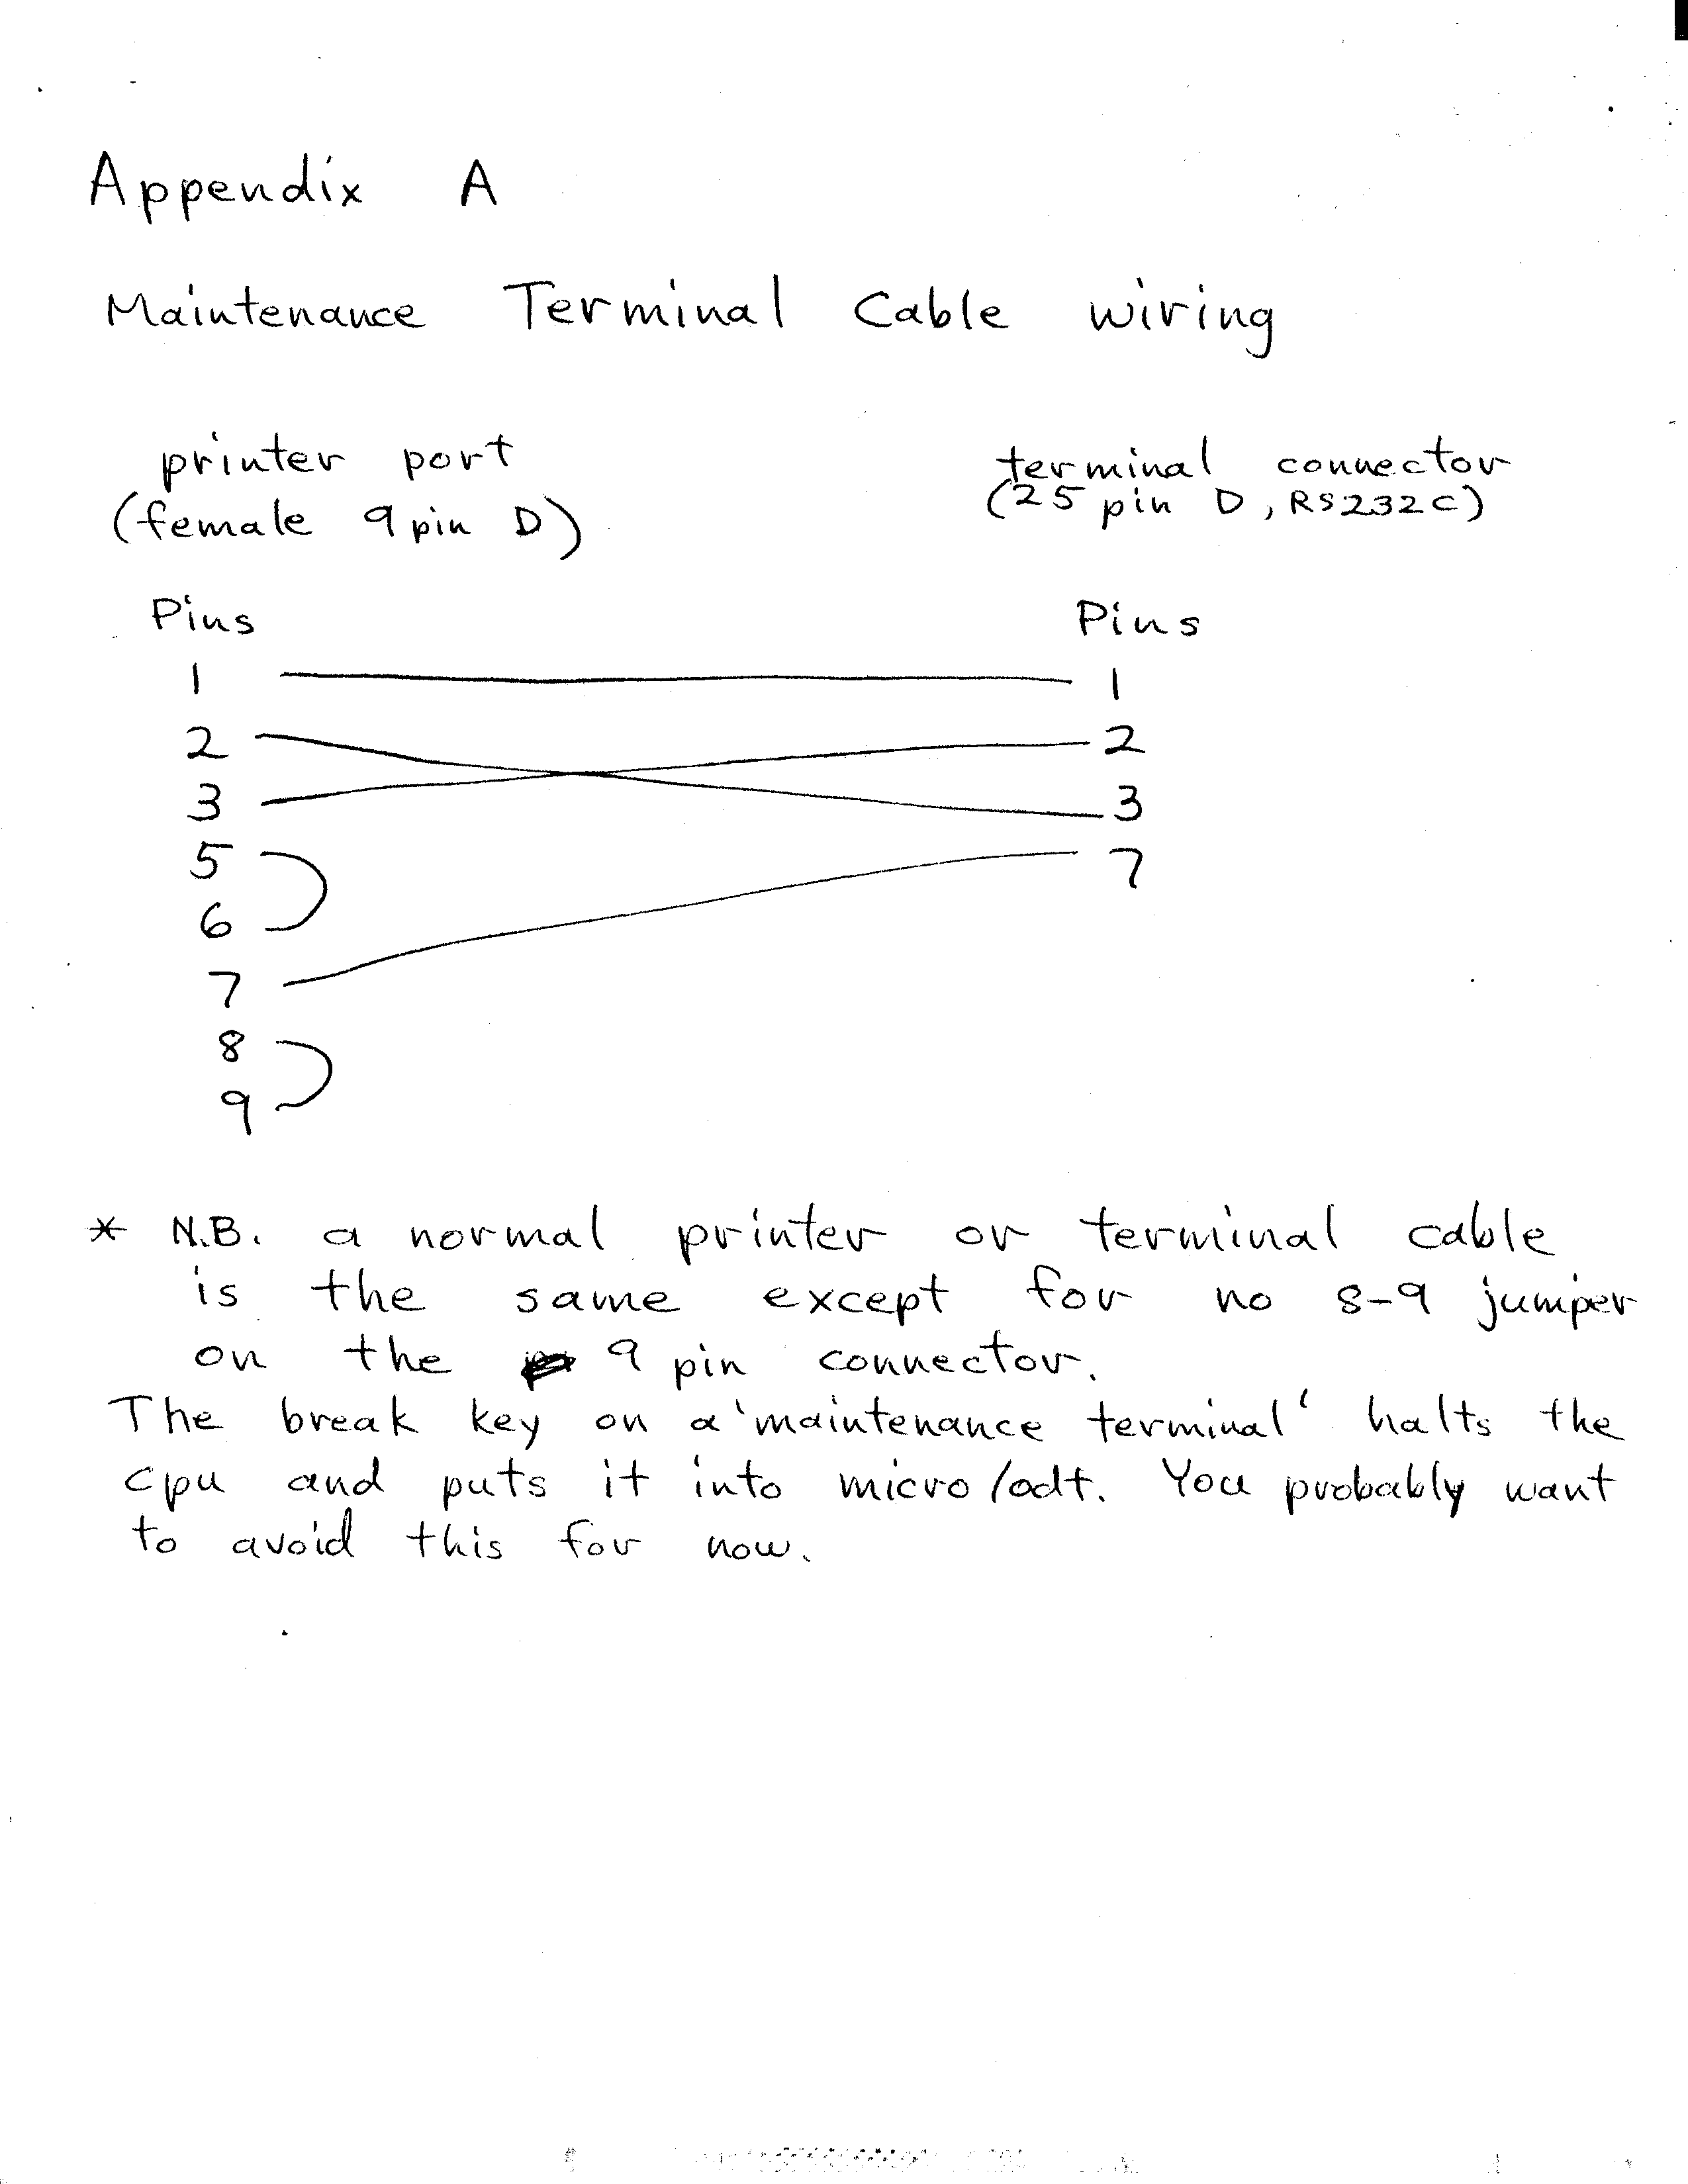 Appendix A
Maintenance Terminal Cable wiring
printer port
(female 9 pin D)
terminal connector
(25 pin D, RS232C)
Pins
1
2
3
5
6
7
8
9
Pins
1
2
3
7
* N.B. a normal printer or terminal cable
is the same except for no 8-9 jumper
on the 9 pin connector.
The break key on a 'maintenance terminal' halts the
cpu and puts it into micro/odt. You probably want
to avoid this for now.